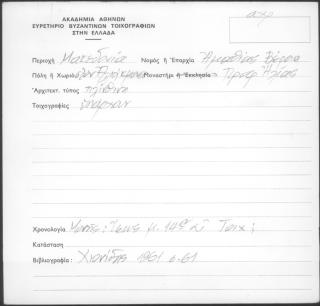 ΑΚΑΔΗΜΙΑ ΑΘΗΝΩΝ
ΕΥΡΕΤΗΡΙΟ ΒΥΖΑΝΤΙΝΩΝ ΤΟΙΧΟΓΡΑΦΙΩΝ
ΣΤΗΝ ΕΛΛΑΔΑ
Περιοχή Μακεδονία Νομός ή Επαρχία Ημαθίας Βέροια
Πόλη ή Χωριό Μοναστήρι ή Εκκλησία Προφ. Ηλίας
Αρχιτεκτ. τύπος
Τοιχογραφίες υπάρχουν
Χρονολογία 14ος
Κατάσταση
Βιβλιογραφία: Χιονίδης 1961 σ. 61